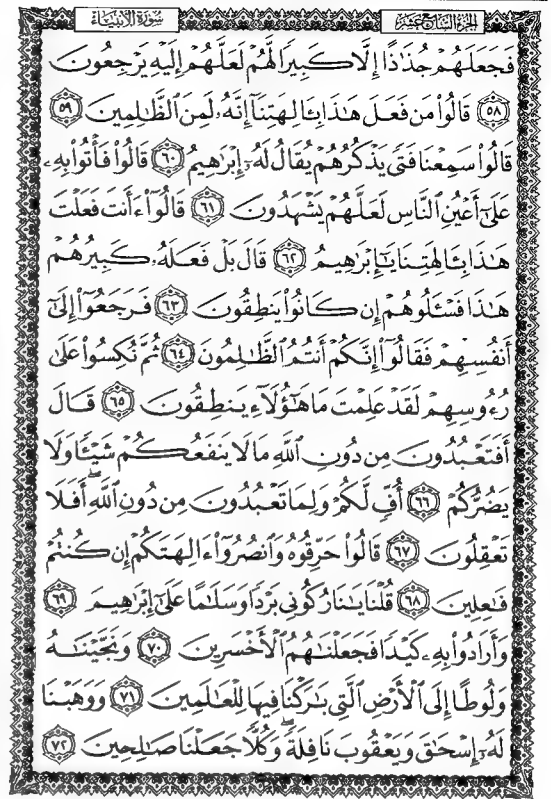 سُورَةُ الأَنبِيَاءِ
الجزء السابع عشر
فَجَعَلَهُمْ جُذَٰذًا إِلَّا كَبِيرًا لَّهُمْ لَعَلَّهُمْ إِلَيْهِ يَرْجِعُونَ
٥٨ قَالُوا۟ مَن فَعَلَ هَٰذَا بِـَٔالِهَتِنَآ إِنَّهُۥ لَمِنَ ٱلظَّٰلِمِينَ ٥٩
قَالُوا۟ سَمِعْنَا فَتًى يَذْكُرُهُمْ يُقَالُ لَهُۥٓ إِبْرَٰهِيمُ ٦٠ قَالُوا۟ فَأْتُوا۟ بِهِۦ
عَلَىٰٓ أَعْيُنِ ٱلنَّاسِ لَعَلَّهُمْ يَشْهَدُونَ ٦١ قَالُوٓا۟ ءَأَنتَ فَعَلْتَ
هَٰذَا بِـَٔالِهَتِنَا يَٰٓإِبْرَٰهِيمُ ٦٢ قَالَ بَلْ فَعَلَهُۥ كَبِيرُهُمْ
هَٰذَا فَسْـَٔلُوهُمْ إِن كَانُوا۟ يَنطِقُونَ ٦٣ فَرَجَعُوٓا۟ إِلَىٰٓ
أَنفُسِهِمْ فَقَالُوٓا۟ إِنَّكُمْ أَنتُمُ ٱلظَّٰلِمُونَ ٦٤ ثُمَّ نُكِسُوا۟ عَلَىٰ
رُءُوسِهِمْ لَقَدْ عَلِمْتَ مَا هَٰٓؤُلَآءِ يَنطِقُونَ ٦٥ قَالَ
أَفَتَعْبُدُونَ مِن دُونِ ٱللَّهِ مَا لَا يَنفَعُكُمْ شَيْـًٔا وَلَا
يَضُرُّكُمْ ٦٦ أُفٍّ لَّكُمْ وَلِمَا تَعْبُدُونَ مِن دُونِ ٱللَّهِ ۖ أَفَلَا
تَعْقِلُونَ ٦٧ قَالُوا۟ حَرِّقُوهُ وَٱنصُرُوٓا۟ ءَالِهَتَكُمْ إِن كُنتُمْ
فَٰعِلِينَ ٦٨ قُلْنَا يَٰنَارُ كُونِى بَرْدًا وَسَلَٰمًا عَلَىٰٓ إِبْرَٰهِيمَ ٦٩
وَأَرَادُوا۟ بِهِۦ كَيْدًا فَجَعَلْنَٰهُمُ ٱلْأَخْسَرِينَ ٧٠ وَنَجَّيْنَٰهُ
وَلُوطًا إِلَى ٱلْأَرْضِ ٱلَّتِى بَٰرَكْنَا فِيهَا لِلْعَٰلَمِينَ ٧١ وَوَهَبْنَا
لَهُۥٓ إِسْحَٰقَ وَيَعْقُوبَ نَافِلَةً ۖ وَكُلًّا جَعَلْنَا صَٰلِحِينَ ٧٢